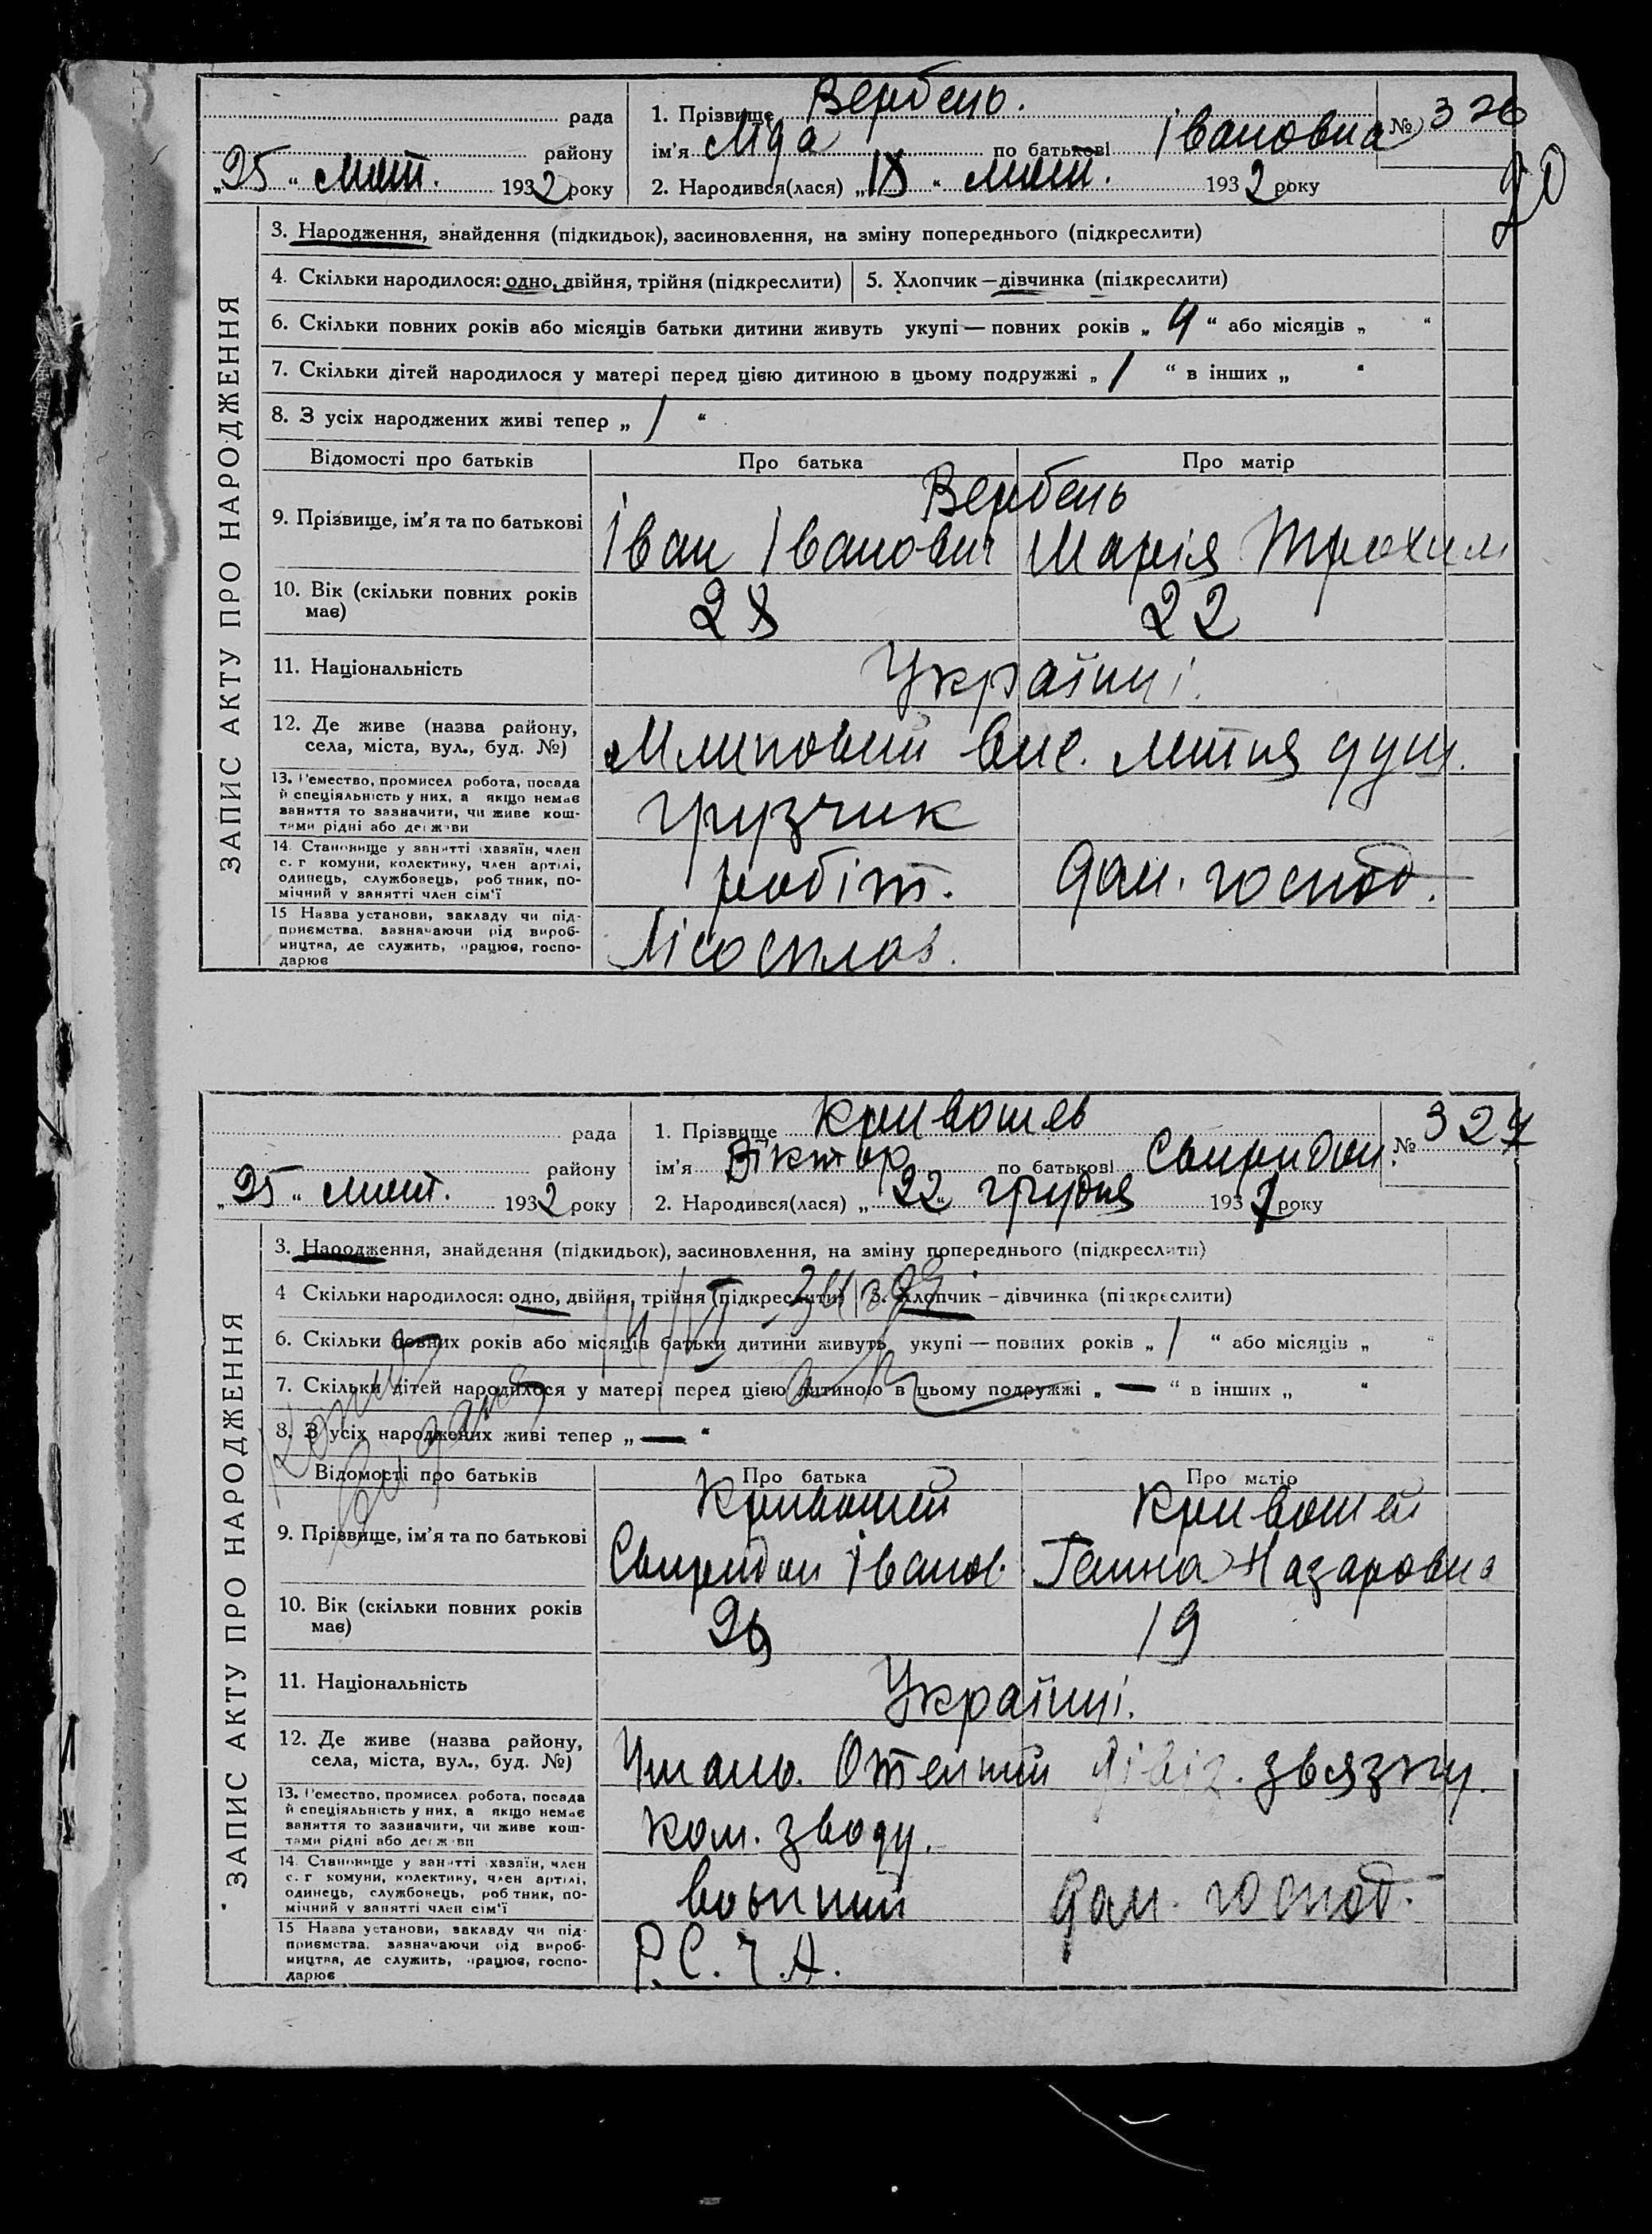 рада
1. Прізвище Вербень.
№ 326
району
ім'я Ліда по батькові Івановна
„25“ лют. 1932 року
2. Народився(лася) „18“ лют. 1932 року
20
ЗАПИС АКТУ ПРО НАРОДЖЕННЯ
3. Народження, знайдення (підкидьок), засиновлення, на зміну попереднього (підкреслити)
4. Скільки народилося: одно, двійня, трійня (підкреслити)
5. Хлопчик — дівчинка (підкреслити)
6. Скільки повних років або місяців батьки дитини живуть укупі — повних років „4“ або місяців „ “
7. Скільки дітей народилося у матері перед цією дитиною в цьому подружжі „1“ в інших „ “
8. З усіх народжених живі тепер „1“
Відомості про батьків
Про батька
Про матір
Вербень
9. Прізвище, ім'я та по батькові
Іван Іванович
Марія Трохим
10. Вік (скільки повних років має)
28
22
11. Національність
Українці.
12. Де живе (назва району, села, міста, вул., буд. №)
13. Ремество, промисел робота, посада й спеціяльність у них, а якщо немає заняття то зазначити, чи живе коштами рідні або держави
грузчик
14. Становище у занятті хазяїн, член с. г комуни, колективу, член артілі, одинець, службовець, робітник, помічний у занятті член сім'ї
робіт.
дом. господ.
15 Назва установи, закладу чи підприємства, зазначаючи рід виробництва, де служить, працює, господарює
Лісосплав.
рада
1. Прізвище Кривошев
№ 327
району
ім'я Віктор по батькові Свиридон.
„25“ лют. 1932 року
2. Народився(лася) „22“ грудня 1931 року
ЗАПИС АКТУ ПРО НАРОДЖЕННЯ
3. Народження, знайдення (підкидьок), засиновлення, на зміну попереднього (підкреслити)
4 Скільки народилося: одно, двійня, трійня (підкреслити)
5. Хлопчик – дівчинка (підкреслити)
6. Скільки повних років або місяців батьки дитини живуть укупі — повних років „1“ або місяців „ “
7. Скільки дітей народилося у матері перед цією дитиною в цьому подружжі „—“ в інших „ “
8. З усіх народжених живі тепер „—“
Відомості про батьків
Про батька
Про матір
Кривошей
Кривошей
9. Прізвище, ім'я та по батькові
Свиридон Іванов.
Ганна Назаровна
10. Вік (скільки повних років має)
26
19
11. Національність
Українці.
12. Де живе (назва району, села, міста, вул., буд. №)
Умань. Отемний Дівіз. звязку.
13. Ремество, промисел робота, посада й спеціяльність у них, а якщо немає заняття то зазначити, чи живе коштами рідні або держави
Ком. зводу.
14. Становище у занятті хазяїн, член с. г комуни, колективу, член артілі, одинець, службовець, робітник, помічний у занятті член сім'ї
воєнний
дом. господ.
15 Назва установи, закладу чи підприємства, зазначаючи рід виробництва, де служить, працює, господарює
Р.С.Ч.А.